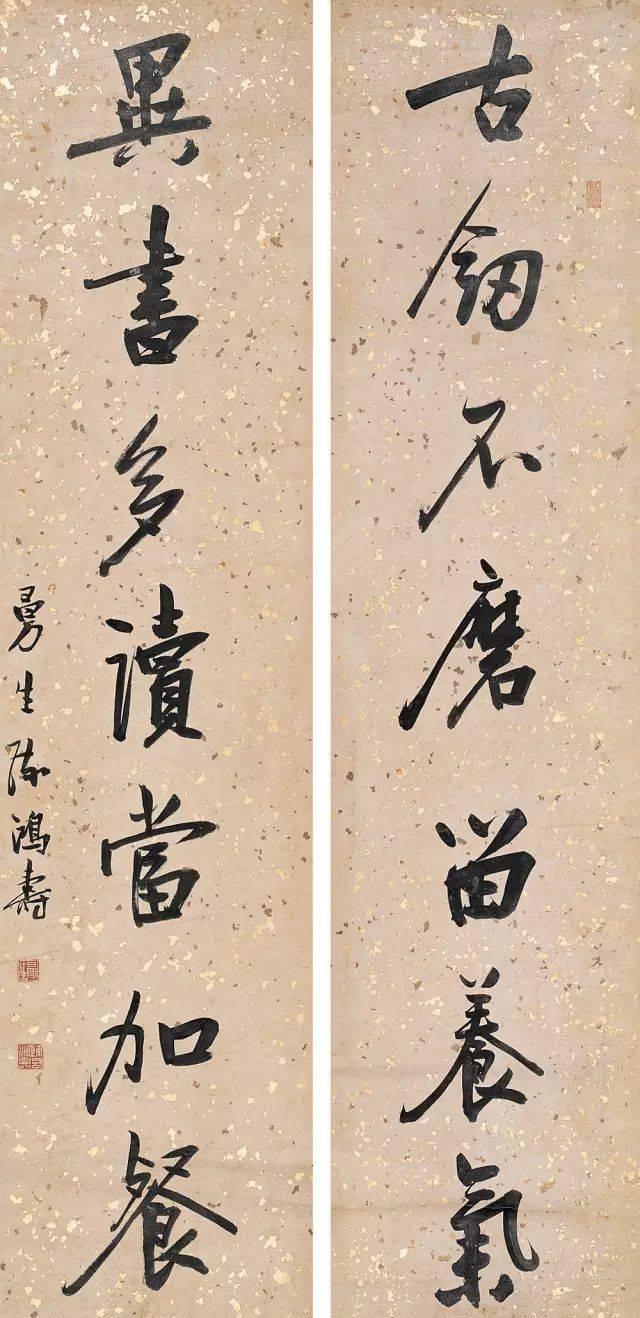 古劍不磨留養氣
異書多讀當加餐
曼生陳鴻壽